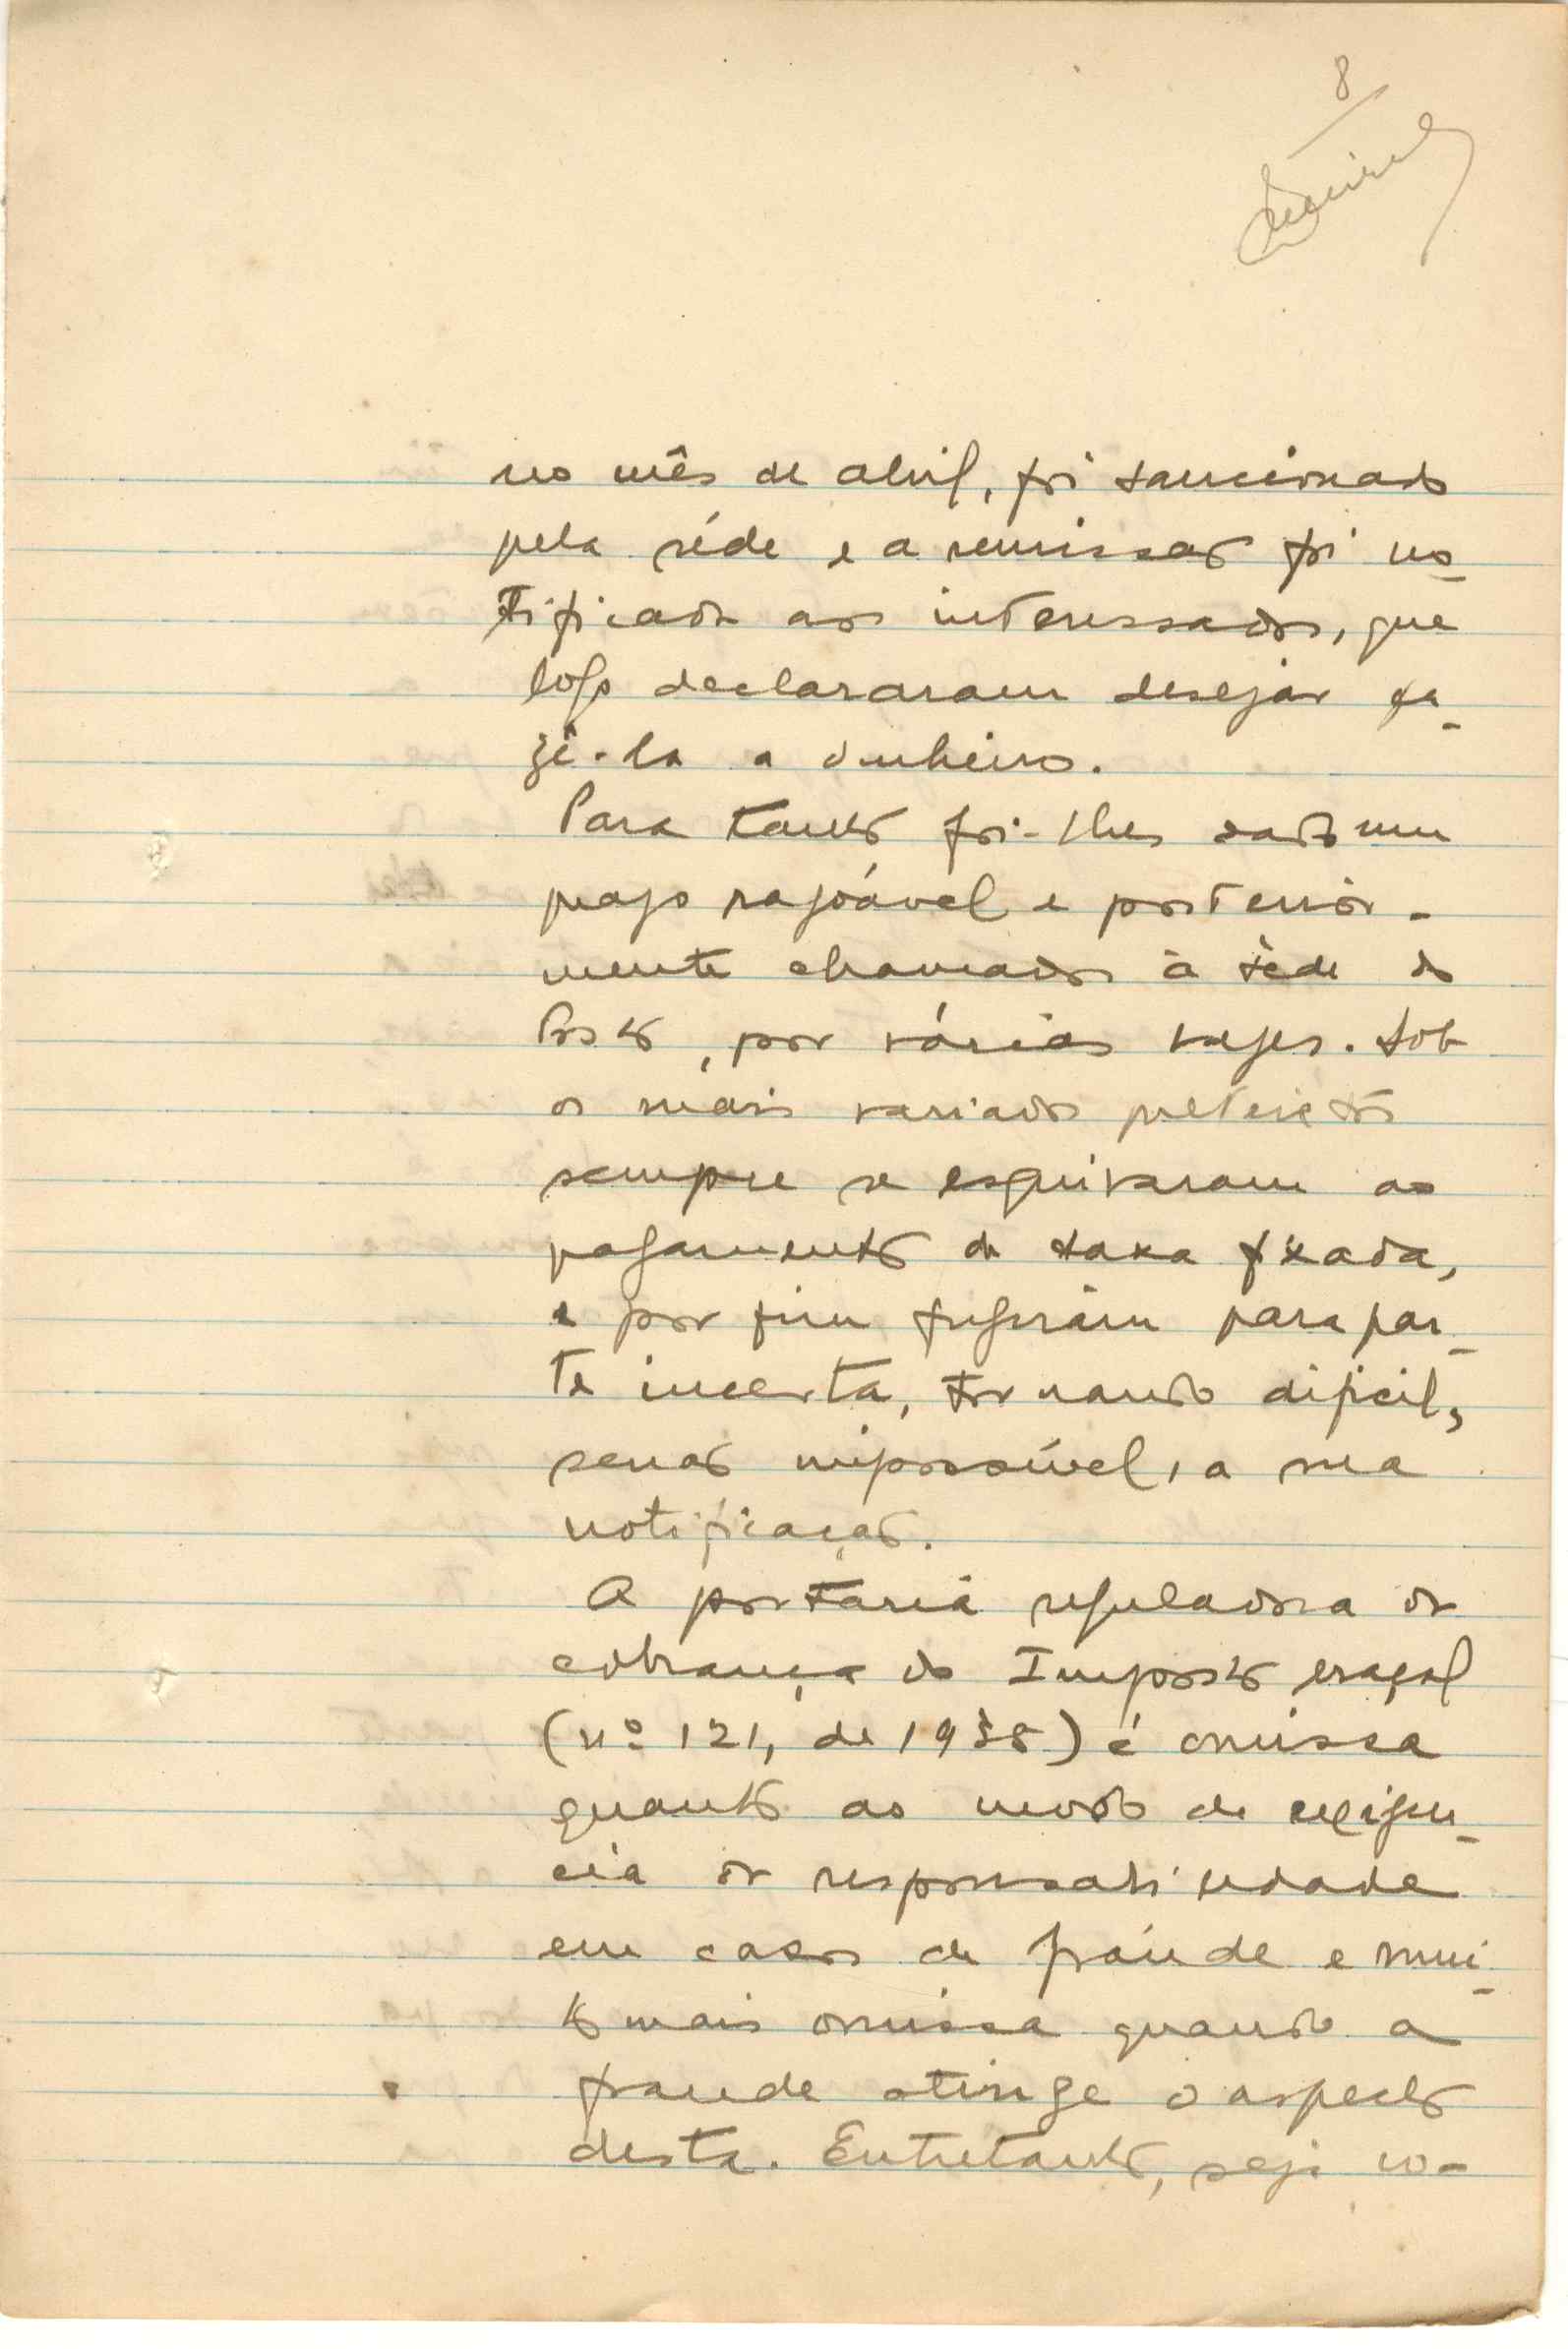 8
no mês de abril, foi sancionado
pela séde e a remissão foi no-
tificada aos interessados, que
logo declararam desejar fa-
zê-la a dinheiro.
Para tanto foi-lhes dado um
prazo razoável e posterior-
mente chamados à séde do
Posto, por várias vezes. Sob
os mais variados pretextos
sempre se esquivaram ao
pagamento da taxa fixada,
e por fim fugiram para par-
te incerta, tornando dificil,
senão impossível, a sua
notificação.
A portaria reguladora da
cobrança do Imposto
(nº 121, de 1938) é omissa
quanto ao modo de exigen-
cia da responsabilidade
em casos de fraude e mui-
to mais omissa quando a
fraude atinge o aspecto
desta. Entretanto, seja co-